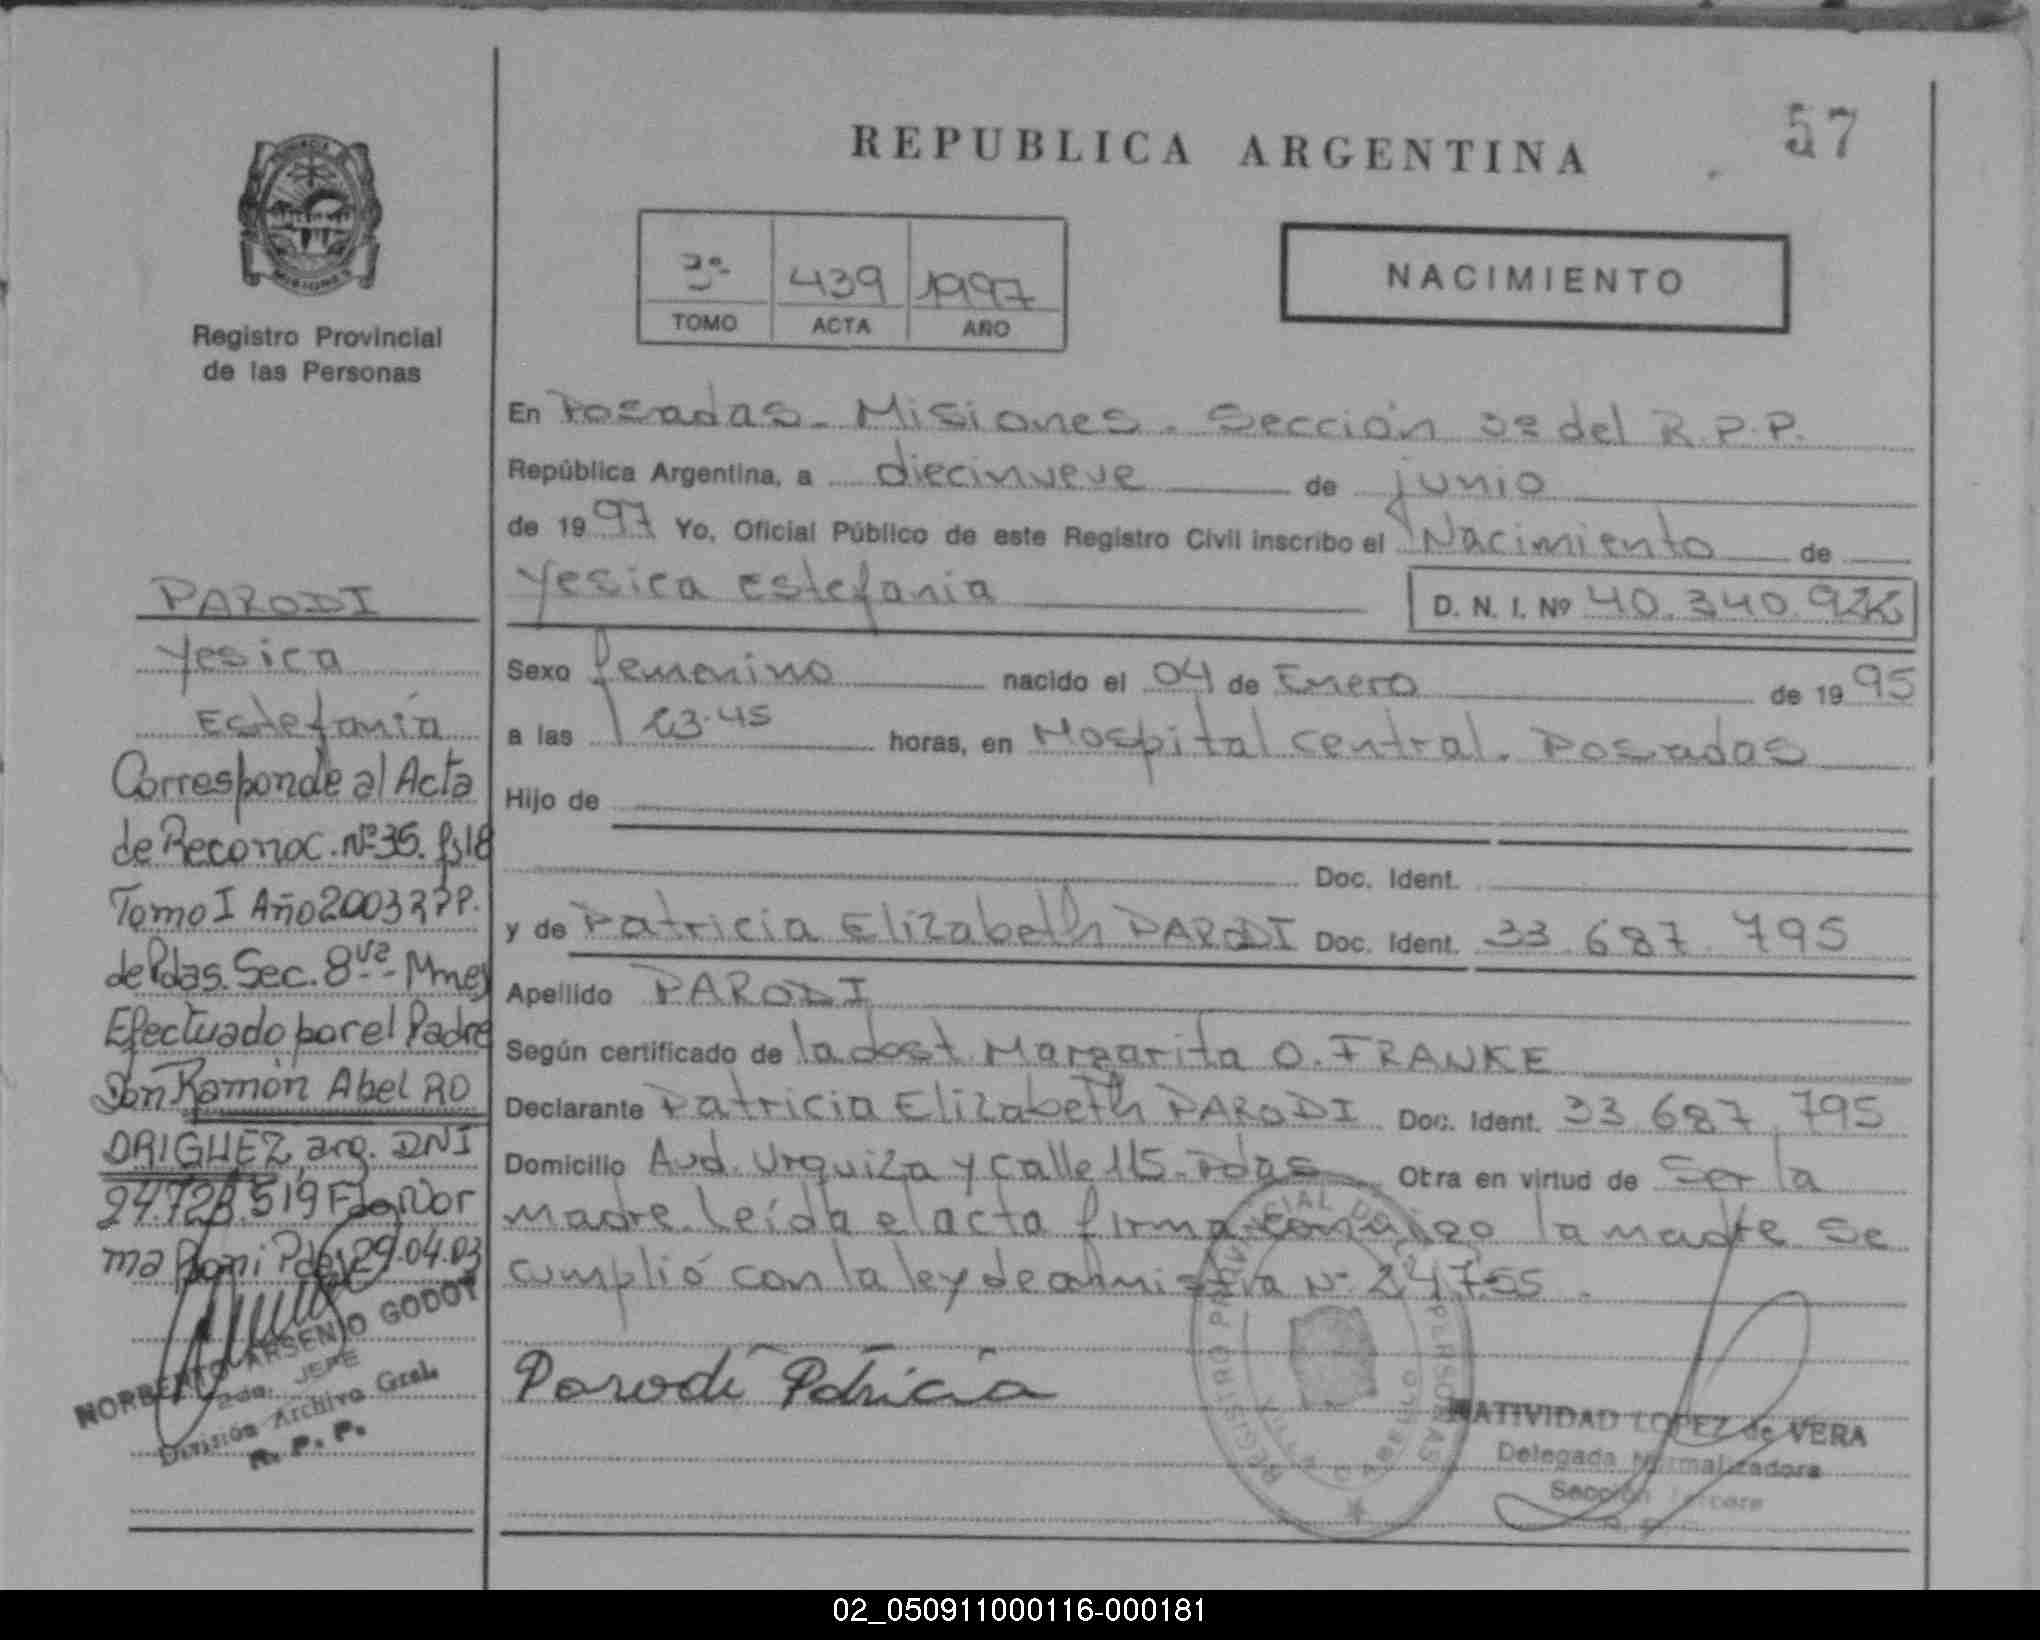 57
REPUBLICA ARGENTINA
MISIONES
Registro Provincial
de las Personas
3º 439 1997
TOMO ACTA AÑO
NACIMIENTO
En Posadas - Misiones - Sección 3º del R.P.P.
República Argentina, a diecinueve de junio
de 1997 Yo, Oficial Público de este Registro Civil inscribo el Nacimiento de
Yesica Estefania
D. N. I. Nº 40.340.
Sexo femenino nacido el 04 de Enero de 1995
a las 23.45 horas, en Hospital central. Posadas
Hijo de
Doc. Ident.
y de Patricia Elizabeth PARODI Doc. Ident. 33.687.795
Apellido PARODI
Según certificado de la dost. Margarita O. FRANKE
Declarante Patricia Elizabeth PARODI Doc. Ident. 33.687.795
Domicilio Avd. Urquiza y calle 115. Pdas Otra en virtud de Ser la
madre. Leída el acta firma conmigo la madre Se
cumplió con la ley de amnistia Nº 24755.
Parodi Patricia
NATIVIDAD LOPEZ de VERA
Delegada Normalizadora
Sección Tercera
PARODI
Yesica
Estefanía
Corresponde al Acta
de Reconoc. Nº 35. fs 18
Tomo I Año 2003 RPP.
de Pdas. Sec. 8va - Mnes
Efectuado por el Padre
Don Ramón Abel RO
DRIGUEZ, arg. DNI
519 Fdo Nor
ma 29.04.03
NORBERTO ARSENIO GODOY
2do. JEFE
División Archivo Gral.
R. P. P.
02_050911000116-000181